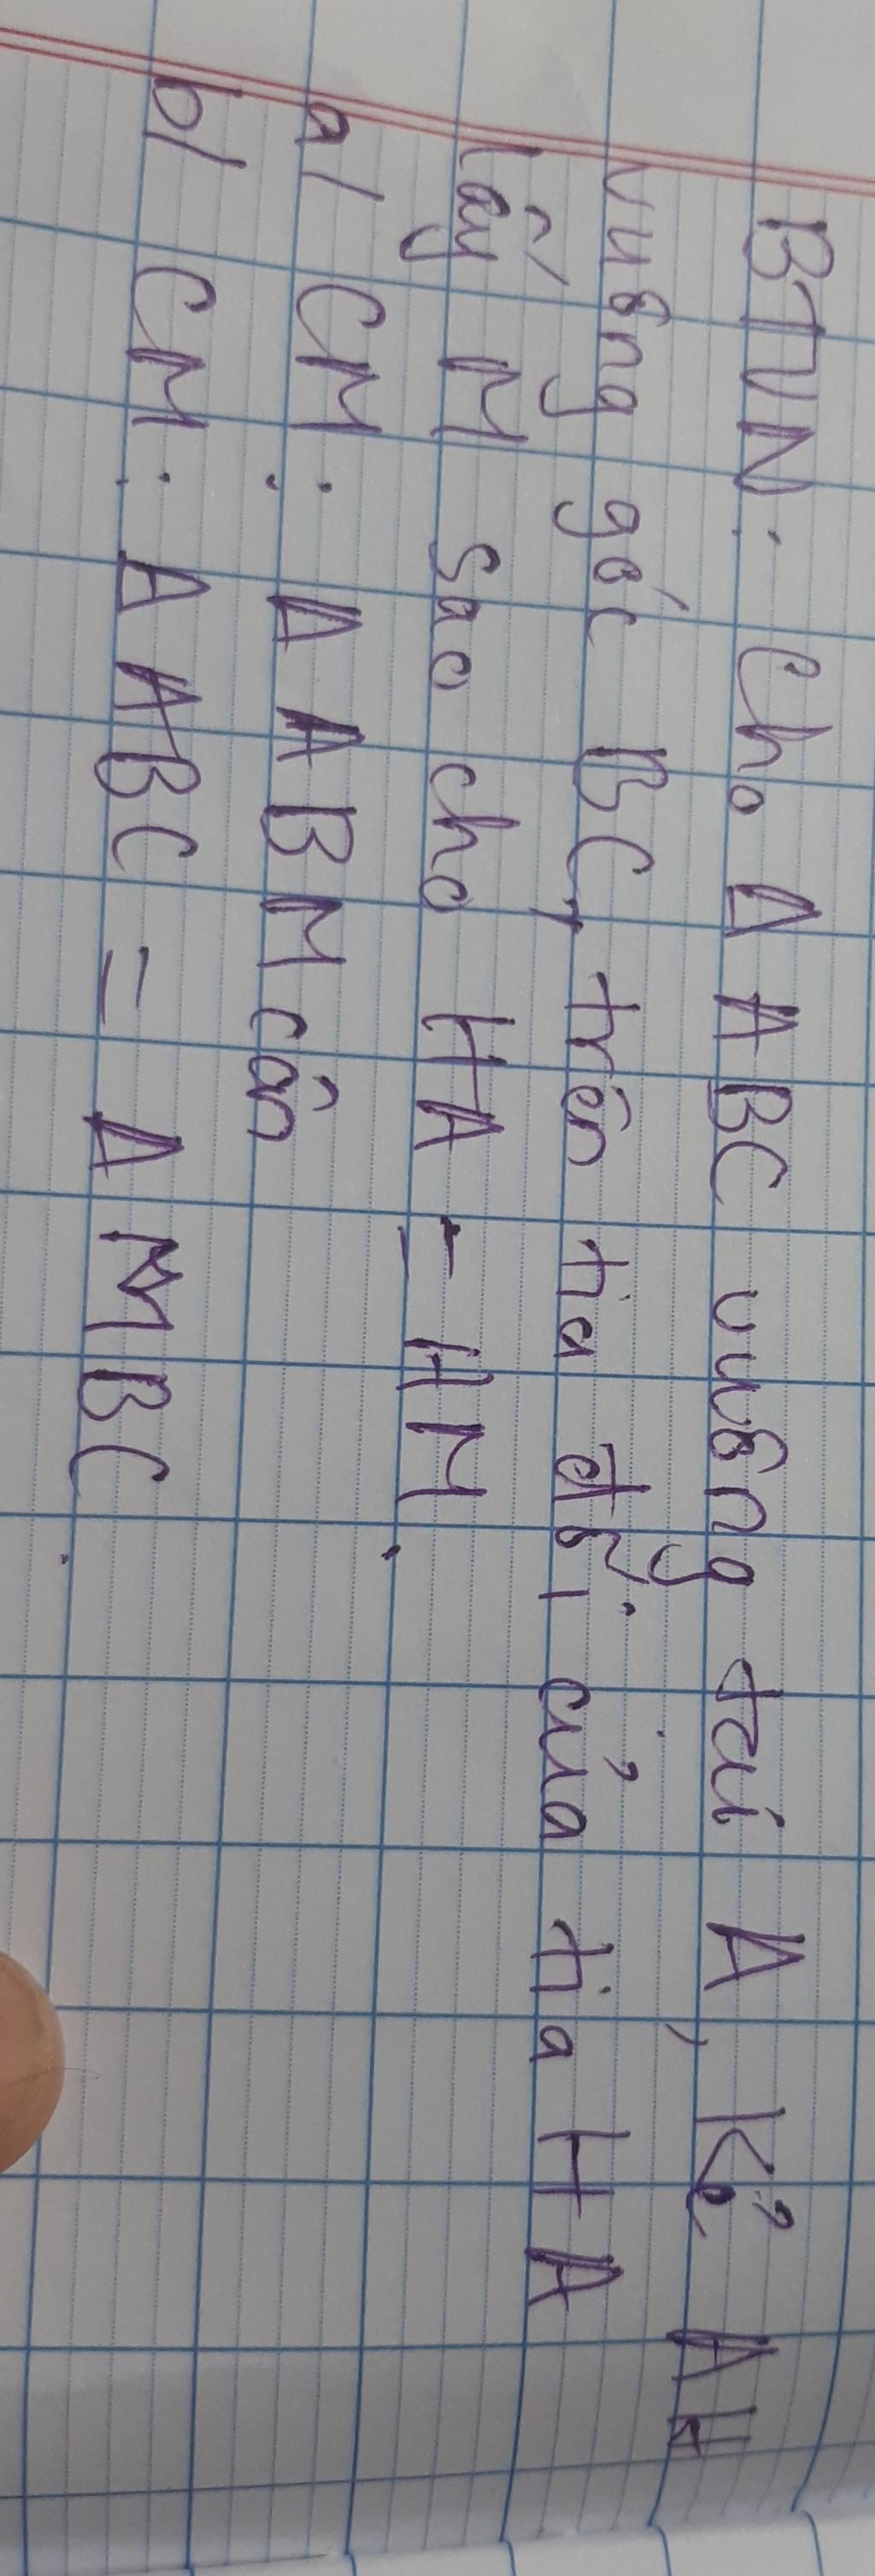 BTVN: Cho Δ ABC vuông tại A, Kẻ AH
vuông góc BC, trên tia đối của tia HA
lấy M sao cho HA = HM.
a/ CM: Δ ABM cân
b/ CM: Δ ABC = Δ MBC.